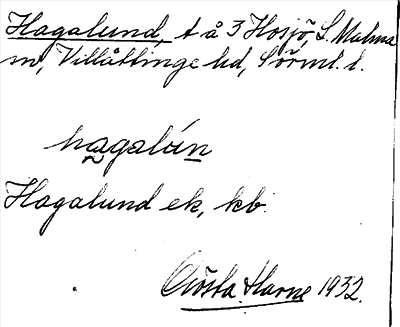 Hagalund, t å 3 Hosjö, L. Malma
sn, Villåttinge hd, Sörml. l.
hagalún
Hagalund ek, kb.
Gösta Harne 1932.